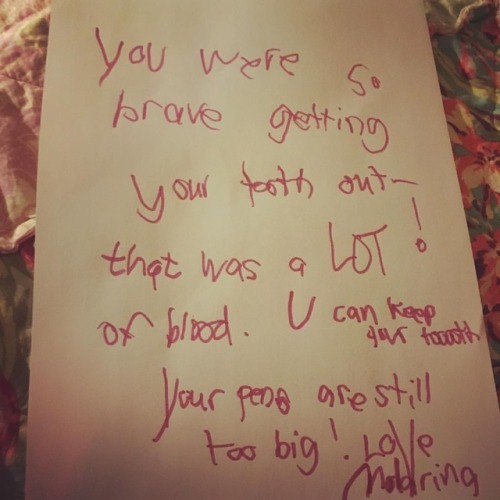 You were so
brave getting
your tooth out-
that was a LOT!
of blood. U can keep
your toooth
Your pens are still
too big! Love